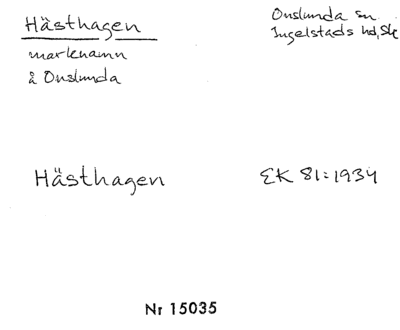 Hästhagen
marknamn
å Onslunda
Onslunda sn
Ingelstads hd, Sk
Hästhagen
EK 81:1934
Nr 15035